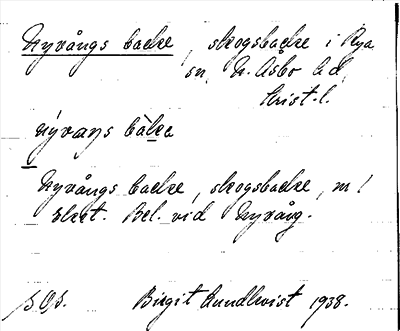 Nyvångs backe, skogsbacke i Rya
sn, N. Åsbo hd,
Krist. l.
nývaŋs bàkə
Nyvångs backe, skogsbacke, m /
skrt. Bel. vid Nyvång.
Birgit Lundkvist 1938.